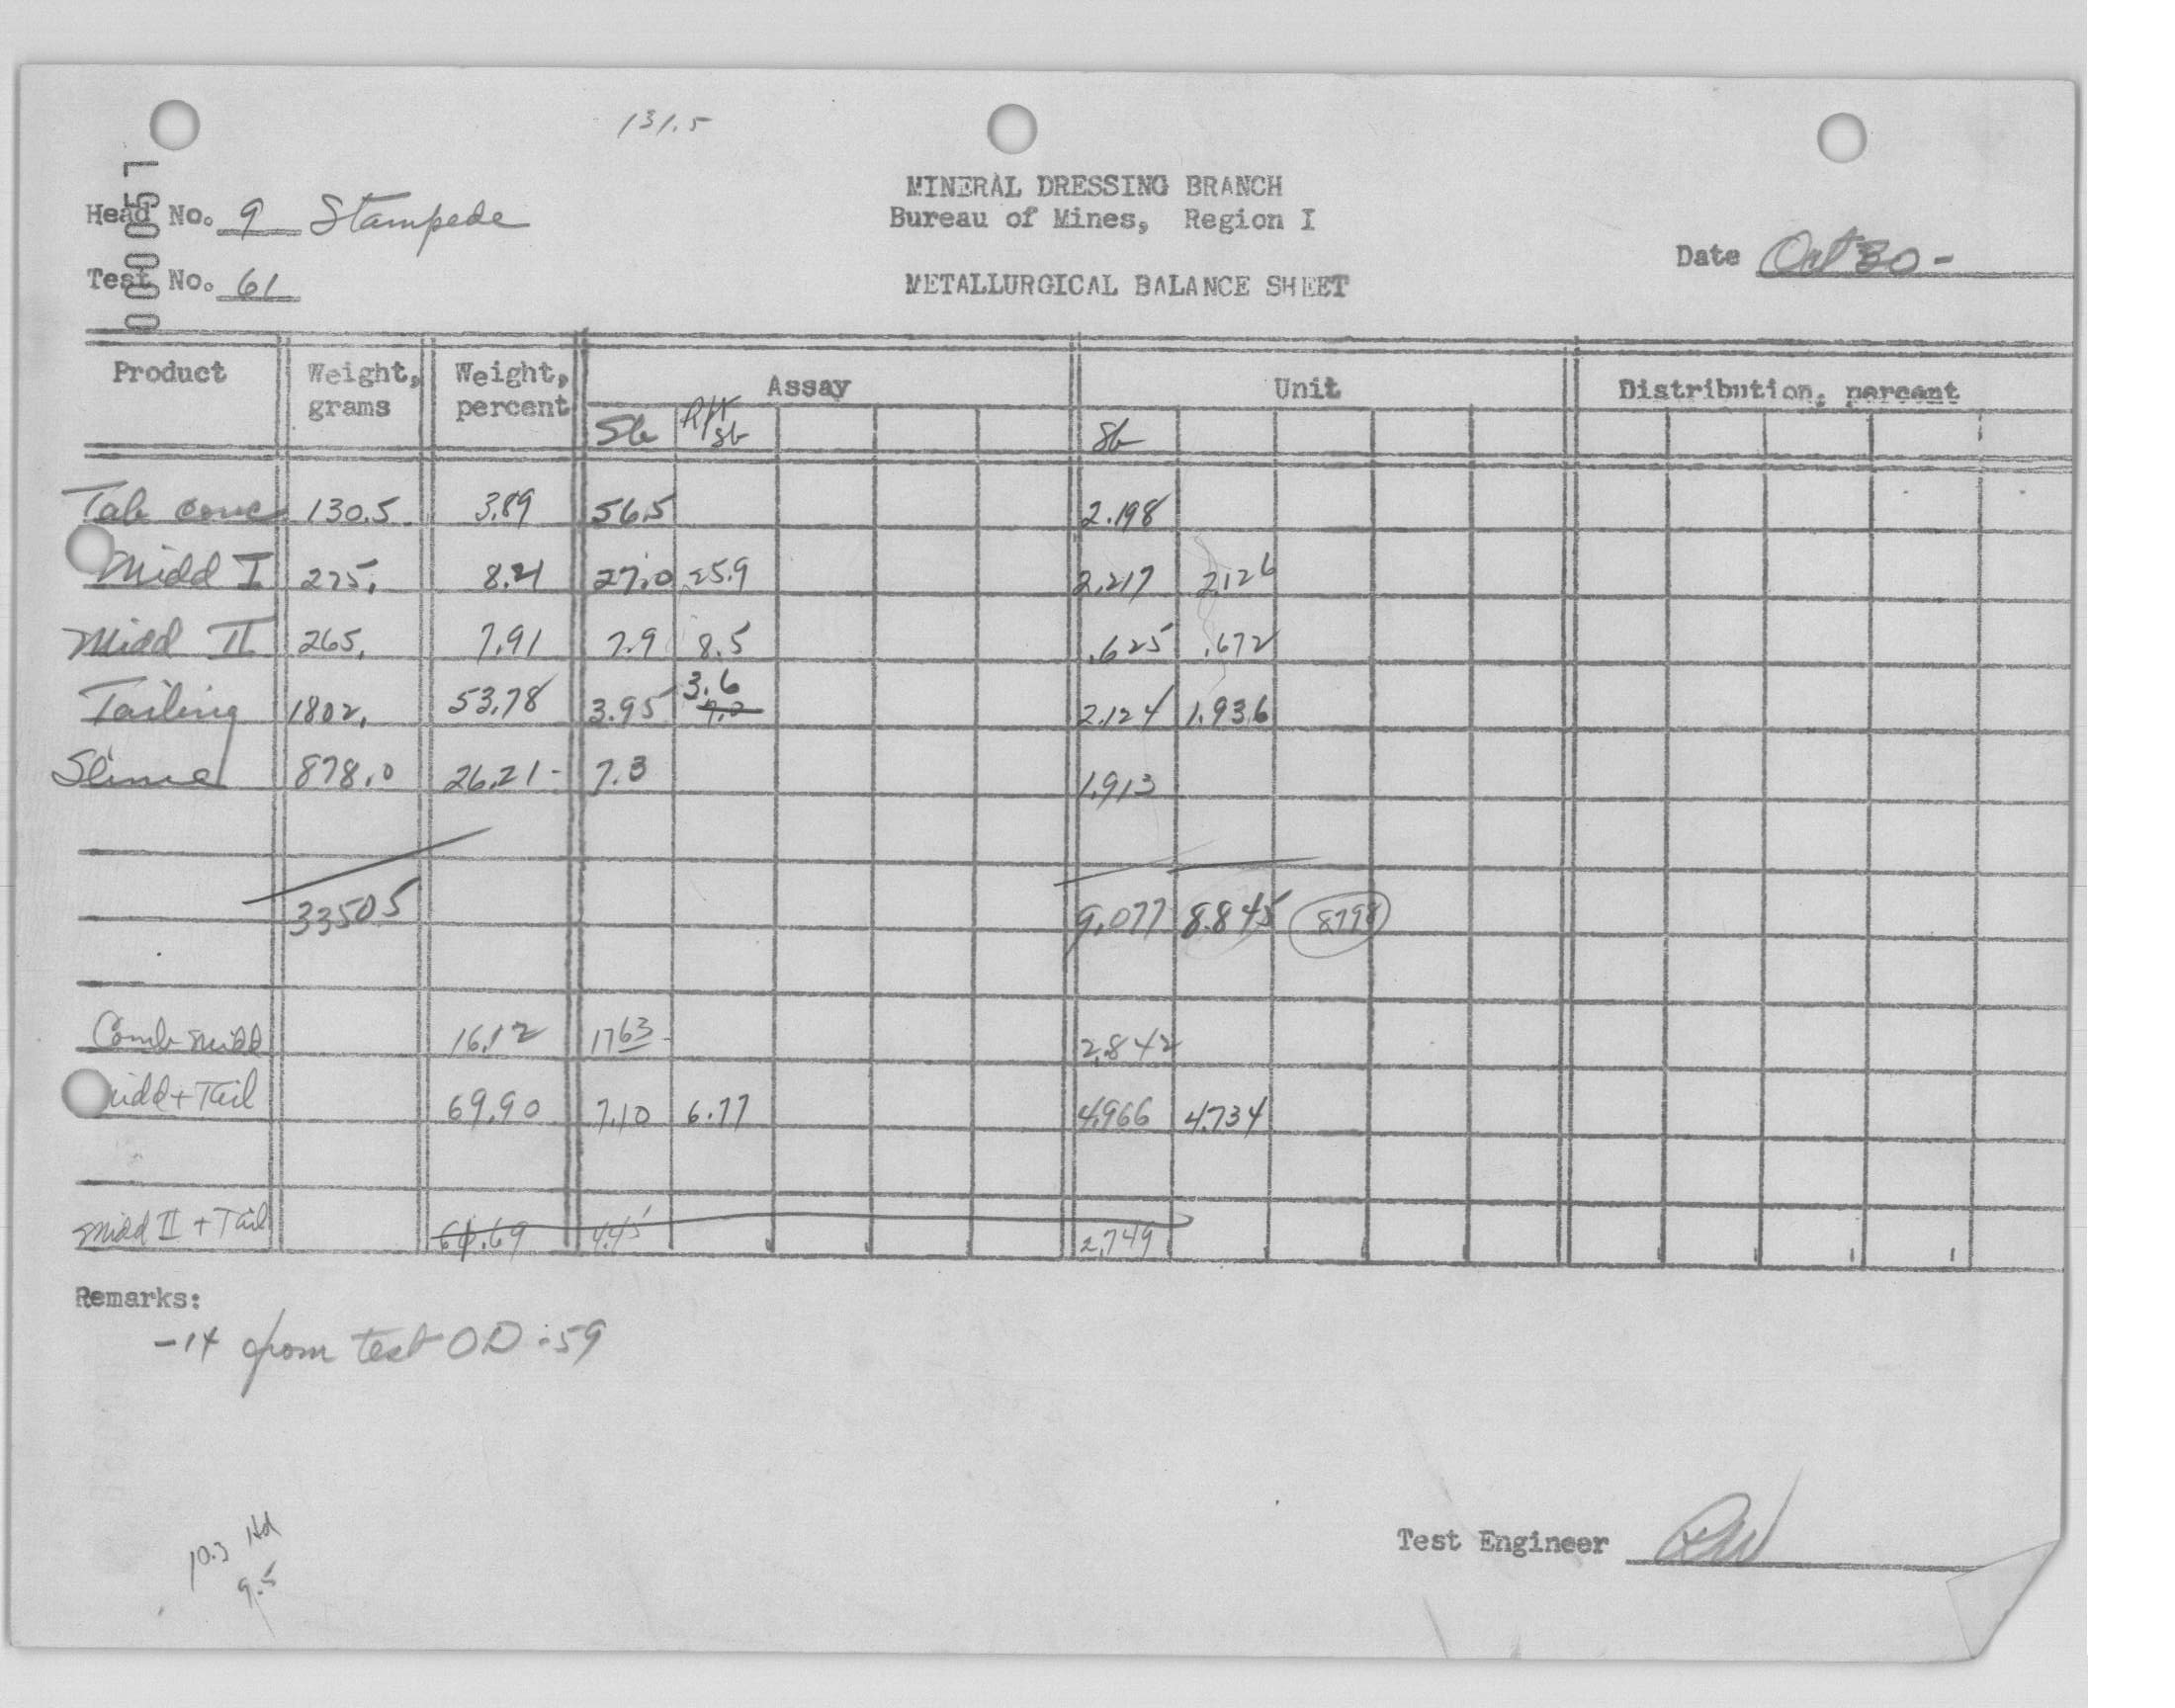 131.5
000057
MINERAL DRESSING BRANCH
Head No. 9 Stampede
Bureau of Mines, Region I
Date Oct 30 -
Test No. 61
METALLURGICAL BALANCE SHEET
Product Weight, grams Weight, percent Assay Unit Distribution, percent
Sb Sb Sb
Tab conc 130.5 3.89 56.5 2.198
Midd I 275. 8.21 27.0 25.9 2.217 2.126
Midd II 265. 7.91 7.9 8.5 .625 .672
Tailing 1802. 53.78 3.95 3.6 7.2 2.124 1.936
Slime 878.0 26.21 - 7.3 1.913
3350.5 9.077 8.845 8798
Comb midd 16.12 17 63 - 2.842
Midd + Tail 69.90 7.10 6.77 4.966 4.734
Midd II + Tail 61.69 4.45 2.749
Remarks:
-14 from test OD-59
10.3 Hd
9.5
Test Engineer